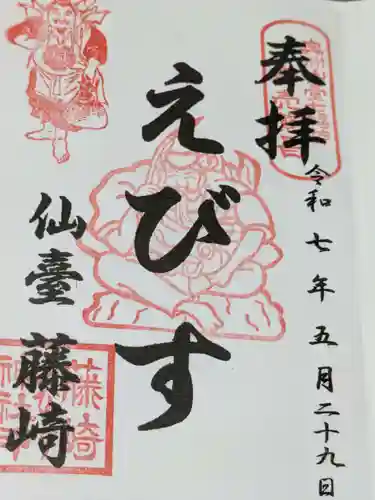 奉拝
令和七年五月二十九日
えびす
仙臺
藤崎